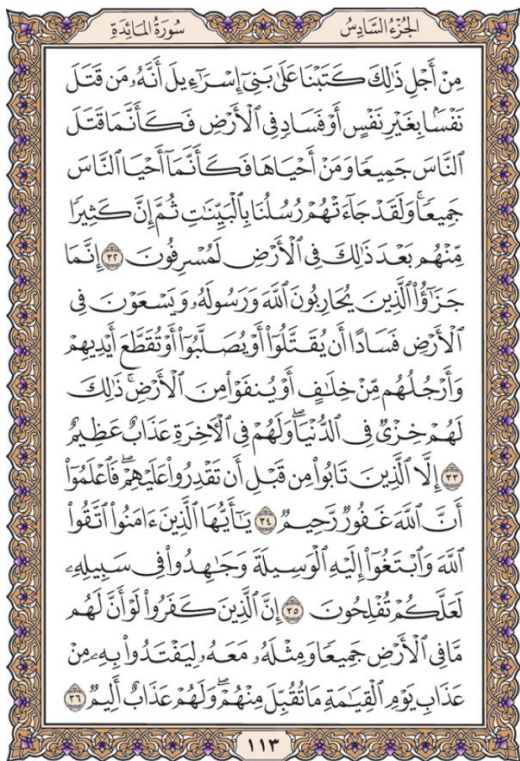 الجُزْءُ السَّادِسُ سُورَةُ المَائِدَةِ
مِنْ أَجْلِ ذَٰلِكَ كَتَبْنَا عَلَىٰ بَنِىٓ إِسْرَٰٓءِيلَ أَنَّهُۥ مَن قَتَلَ
نَفْسًۢا بِغَيْرِ نَفْسٍ أَوْ فَسَادٍ فِى ٱلْأَرْضِ فَكَأَنَّمَا قَتَلَ
ٱلنَّاسَ جَمِيعًا وَمَنْ أَحْيَاهَا فَكَأَنَّمَآ أَحْيَا ٱلنَّاسَ
جَمِيعًا ۚ وَلَقَدْ جَآءَتْهُمْ رُسُلُنَا بِٱلْبَيِّنَٰتِ ثُمَّ إِنَّ كَثِيرًا
مِّنْهُم بَعْدَ ذَٰلِكَ فِى ٱلْأَرْضِ لَمُسْرِفُونَ ٣٢ إِنَّمَا
جَزَٰٓؤُا۟ ٱلَّذِينَ يُحَارِبُونَ ٱللَّهَ وَرَسُولَهُۥ وَيَسْعَوْنَ فِى
ٱلْأَرْضِ فَسَادًا أَن يُقَتَّلُوٓا۟ أَوْ يُصَلَّبُوٓا۟ أَوْ تُقَطَّعَ أَيْدِيهِمْ
وَأَرْجُلُهُم مِّنْ خِلَٰفٍ أَوْ يُنفَوْا۟ مِنَ ٱلْأَرْضِ ۚ ذَٰلِكَ
لَهُمْ خِزْىٌ فِى ٱلدُّنْيَا ۖ وَلَهُمْ فِى ٱلْءَاخِرَةِ عَذَابٌ عَظِيمٌ
٣٣ إِلَّا ٱلَّذِينَ تَابُوا۟ مِن قَبْلِ أَن تَقْدِرُوا۟ عَلَيْهِمْ ۖ فَٱعْلَمُوٓا۟
أَنَّ ٱللَّهَ غَفُورٌ رَّحِيمٌ ٣٤ يَٰٓأَيُّهَا ٱلَّذِينَ ءَامَنُوا۟ ٱتَّقُوا۟
ٱللَّهَ وَٱبْتَغُوٓا۟ إِلَيْهِ ٱلْوَسِيلَةَ وَجَٰهِدُوا۟ فِى سَبِيلِهِۦ
لَعَلَّكُمْ تُفْلِحُونَ ٣٥ إِنَّ ٱلَّذِينَ كَفَرُوا۟ لَوْ أَنَّ لَهُم
مَّا فِى ٱلْأَرْضِ جَمِيعًا وَمِثْلَهُۥ مَعَهُۥ لِيَفْتَدُوا۟ بِهِۦ مِنْ
عَذَابِ يَوْمِ ٱلْقِيَٰمَةِ مَا تُقُبِّلَ مِنْهُمْ ۖ وَلَهُمْ عَذَابٌ أَلِيمٌ ٣٦
١١٣